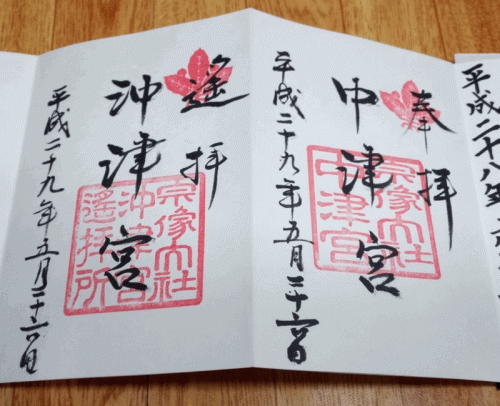 平成二十八年
奉拝
宗像大社
中津宮
中津宮
平成二十九年五月二十六日
遙拝
宗像大社
沖津宮
遙拝所
沖津宮
平成二十九年五月二十六日